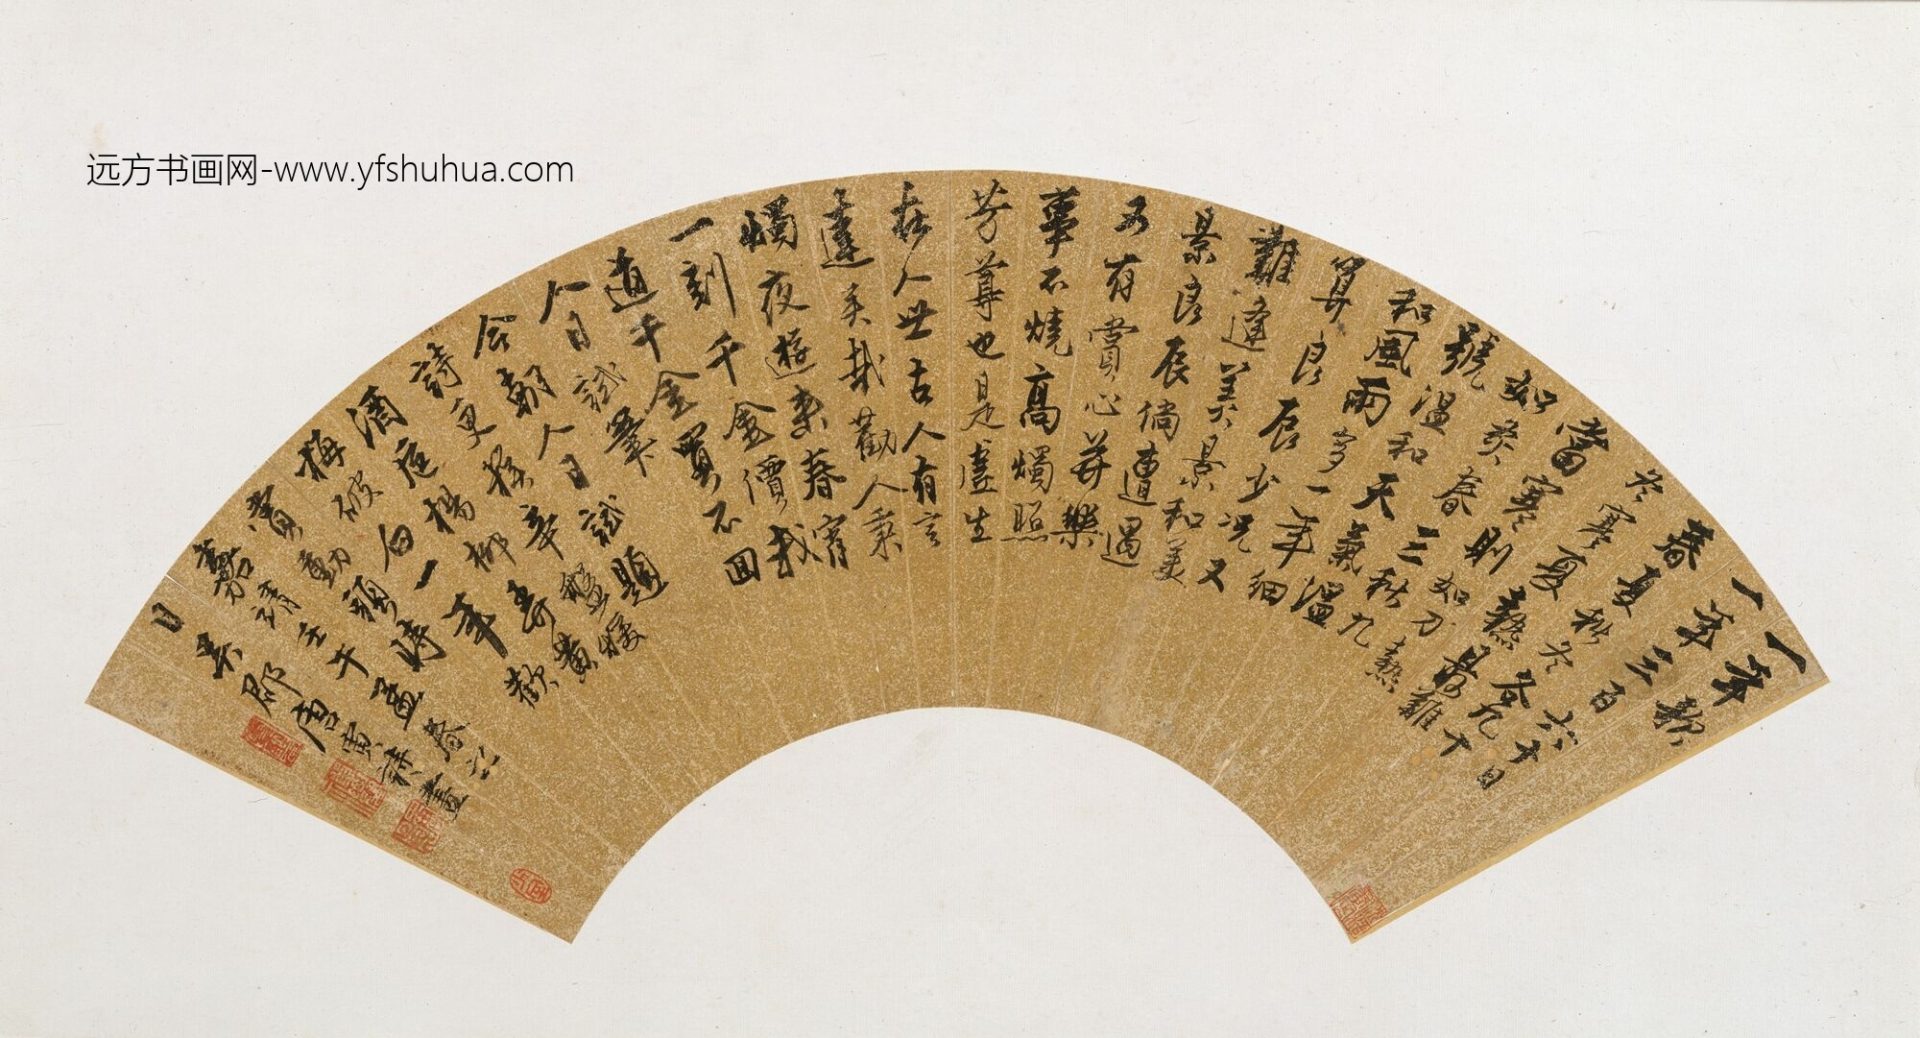 远方书画网-www.yfshuhua.com
一年歌
一年三百六十日
春夏秋冬各九十
冬寒夏熱最難
當寒則如刀熱
如炙春三秋九
號溫和天氣溫
和風雨多一年細
算良辰少況又
難逢美景和美
景良辰倘遭遇
又有賞心并樂
事不燒高燭照
芳尊也是虛生
在人世古人有言
達矣哉勸人秉
燭夜遊來春宵
一刻千金價我
道千金買不回
人日試筆
今朝人日試題
詩更辛盤煖
酒巵楊柳黃
梅破白一年歡
賞動頭時
嘉靖壬午孟春
日吳郡唐寅并畫